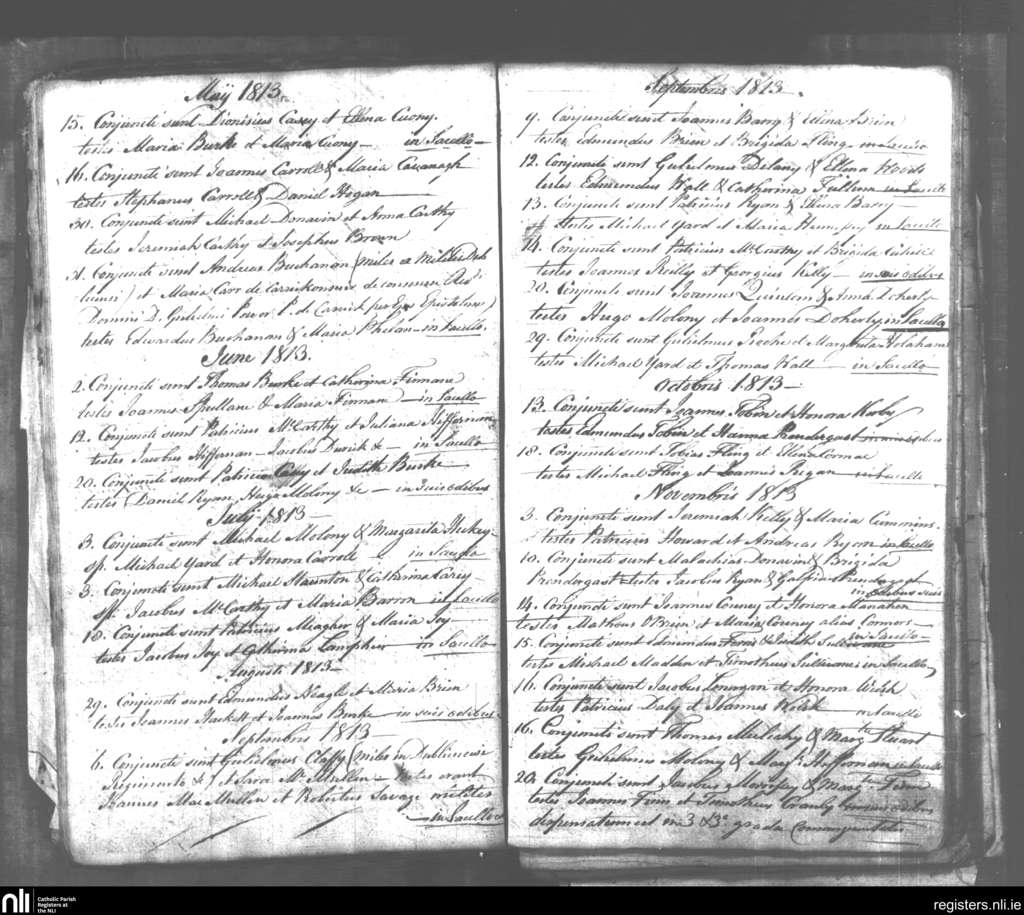 May 1813.
15. Conjuncti sunt Dionisius Casey et Elena Cuony.
testes Maria Burke et Maria Cuony — in Sacello —
16. Conjuncti sunt Joannes Carroll & Maria Cavanagh
testes Stephanus Carroll & Daniel Hogan
30. Conjuncti sunt Michael Donavin et Anna Carthy
testes Jeremiah Carthy et Josephus Brown
31. Conjuncti sunt Andreas Buchanan (miles a Militia
et Maria Carr de Carrickonsuir de consensu
Domini D. Gulielmi Power P. de Carrick per Epistolam)
testes Edwardus Buchanan & Maria Phelan — in Sacello.
June 1813.
2. Conjuncti sunt Thomas Burke et Catherina Finnane
testes Joannes Spullane & Maria Finnane — in Sacello
12. Conjuncti sunt Patricius McCarthy et Juliana Hiffernan
testes Jacobus Hiffernan — Jacobus & — in Sacello
20. Conjuncti sunt Patricius Casey et Judith Burke
testes Daniel Ryan, Hugo Molony &c — in suis edibus
July 1813 —
3. Conjuncti sunt Michael Molony & Margarita Hickey —
sp. Michael Yard et Honora Carroll — in Sacello
3. Conjuncti sunt Michael Staunton & Catherina Carey —
sp. Jacobus McCarthy et Maria Barron in Sacello
18. Conjuncti sunt Patricius Meagher & Maria Joy —
testes Jacobus Joy et Catherina Lamphier — in Sacello
Augusti 1813 —
29. Conjuncti sunt Edmundus Neagle et Maria Brien
testes Joannes Hackett et Joannes Burke — in suis edibus —
Septembris 1813 —
6. Conjuncti sunt Gulielmus Claffy (Miles in Dubliniensi
Regimento &c) et Sara McMullen — testes erant
Joannes MacMullen et Robertus Savage milites
— in Sacello
Septembris 1813.
9. Conjuncti sunt Joannes Barry & Elena Brien
testes Edmundus Brien et Brigida Fling — in Sacello
12. Conjuncti sunt Gulielmus Delany & Ellena Woods
testes Edmundus Wall & Catherina in Sacello
13. Conjuncti sunt Patricius Ryan & Elena Barry —
testes Michael Yard et Maria in Sacello
14. Conjuncti sunt Patricius McCarthy et Brigida Cahill
testes Joannes Reilly et Georgius Kelly — in suis edibus
20. Conjuncti sunt Joannes Quinlan & Anna Doherty
testes Hugo Molony et Joannes Doherty in Sacello
29. Conjuncti sunt Gulielmus et Margarita Holahan
testes Michael Yard et Thomas Wall — in Sacello
Octobris 1813 —
13. Conjuncti sunt Joannes Tobin et Honora Kirby
testes Edmundus Tobin et Hanna Prendergast in suis edibus
18. Conjuncti sunt Tobias Fling et Elena Cormac
testes Michael Fling et Joannes Regan — in Sacello
Novembris 1813
3. Conjuncti sunt Jeremiah Kelly & Maria Cummins.
testes Patricius Howard et Andreas Ryan in Sacello
10. Conjuncti sunt Malachias Donavin & Brigida
Prendergast testes Jacobus Ryan & Prendergast
in edibus suis
14. Conjuncti sunt Joannes Couney et Honora Manahan
testes Matheus OBrien et Maria Couney alias Connors —
in Sacello —
15. Conjuncti sunt Edmundus & Judith Sullivane
testes Michael Madden et Timotheus Sullivane in Sacello,
16. Conjuncti sunt Jacobus Lonargan et Honora Welsh
testes Patricius Daly et Joannes Welsh — in Sacello
16. Conjuncti sunt Thomas Mulcahy & Margta Stuart
testes Gulielmus Molony & Margt Heffernan in Sacello
20. Conjuncti sunt Jacobus Morrissy & Margta Finn
testes Joannes Finn et Timotheus Cranly in suis edibus
dispensatum est in 3 & 3o gradu consanguinitatis
nli
Catholic Parish
Registers at
the NLI
registers.nli.ie